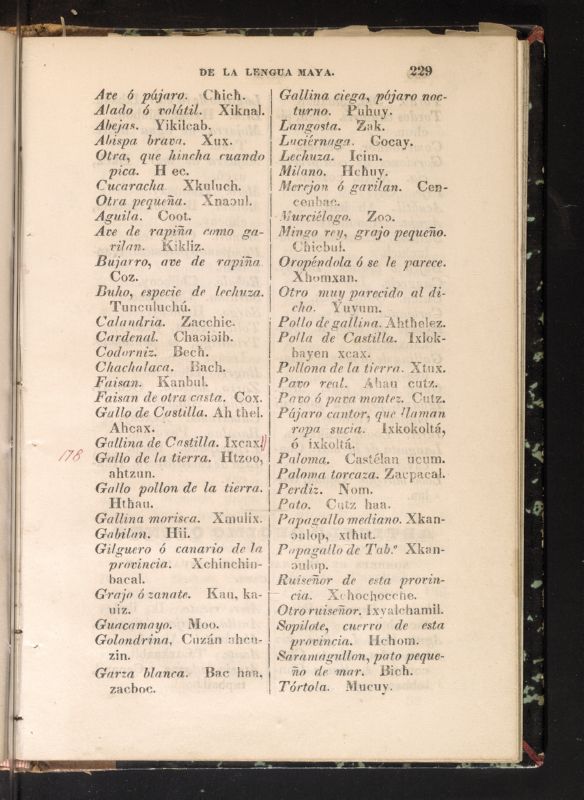 DE LA LENGUA MAYA. 229
Ave ó pájaro. Chich.
Alado ó volátil. Xiknal.
Abejas. Yikilcab.
Abispa brava. Xux.
Otra, que hincha cuando
pica. H ec.
Cucaracha Xkuluch.
Otra pequeña. Xnaɔul.
Aguila. Coot.
Ave de rapiña como ga-
vilan. Kikliz.
Bujarro, ave de rapiña
Coz.
Buho, especie de lechuza.
Tunculuchú.
Calandria. Zacchic.
Cardenal. Chaɔiɔib.
Codorniz. Bech.
Chachalaca. Bach.
Faisan. Kanbul.
Faisan de otra casta. Cox.
Gallo de Castilla. Ah thel.
Ahcax.
Gallina de Castilla. Ixcax.
178 Gallo de la tierra. Htzoo,
ahtzun.
Gallo pollon de la tierra.
Hthau.
Gallina morisca. Xmulix.
Gabilan. Hii.
Gilguero ó canario de la
provincia. Xchinchin-
bacal.
Grajo ó zanate. Kau, ka-
uiz.
Guacamayo. Moo.
Golondrina, Cuzán ahcu-
zin.
Garza blanca. Bac haa,
zacboc.
Gallina ciega, pájaro noc-
turno. Puhuy.
Langosta. Zak.
Luciérnaga. Cocay.
Lechuza. Icim.
Milano. Hchuy.
Merejon ó gavilan. Cen-
cenbac.
Murciélago. Zoɔ.
Mingo rey, grajo pequeño.
Chicbul.
Oropéndola ó se le parece.
Xhomxan.
Otro muy parecido al di-
cho. Yuyum.
Pollo de gallina. Ahthelez.
Polla de Castilla. Ixlok-
bayen xcax.
Pollona de la tierra. Xtux.
Pavo real. Ahau cutz.
Pavo ó pava montez. Cutz.
Pájaro cantor, que llaman
ropa sucia. Ixkokoltá,
ó ixkoltá.
Paloma. Castélan ucum.
Paloma torcaza. Zacpacal.
Perdiz. Nom.
Pato. Cutz haa.
Papagallo mediano. Xkan-
ɔulop, xthut.
Papagallo de Tab.º Xkan-
ɔulop.
Ruiseñor de esta provin-
cia. Xchochocche.
Otro ruiseñor. Ixyalchamil.
Sopilote, cuervo de esta
provincia. Hchom.
Saramagullon, pato peque-
ño de mar. Bich.
Tórtola. Mucuy.